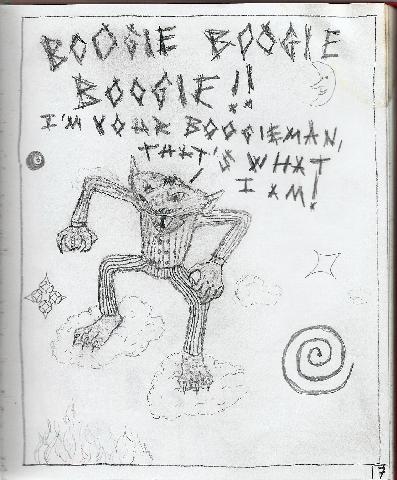 BOOGIE BOOGIE
BOOGIE!!
I'M YOUR BOOGIEMAN,
THAT'S WHAT
I AM!
17